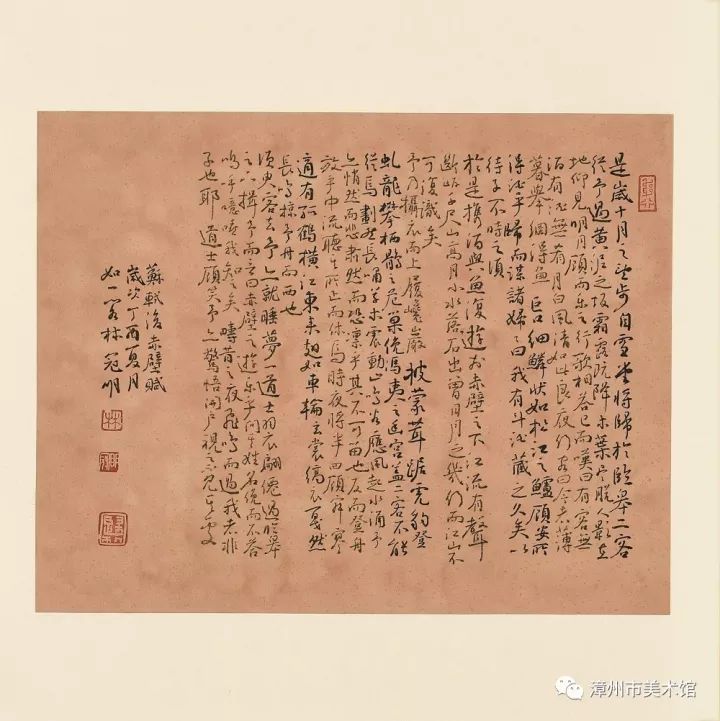 是歲十月之望步自雪堂將歸於臨皋二客
從予過黃泥之坂霜露既降木葉盡脫人影在
地仰見明月顧而樂之行歌相答已而嘆曰有客無
酒有酒無肴月白風清如此良夜何客曰今者薄
暮舉網得魚巨口細鱗狀如松江之鱸顧安所
得酒乎歸而謀諸婦婦曰我有斗酒藏之久矣以
待子不時之須
於是攜酒與魚復遊於赤壁之下江流有聲
斷岸千尺山高月小水落石出曾日月之幾何而江山不
可復識矣
予乃攝衣而上履巉巖披蒙茸踞虎豹登
虬龍攀栖鶻之危巢俛馮夷之幽宮蓋二客不能
從焉劃然長嘯草木震動山鳴谷應風起水涌予
亦悄然而悲肅然而恐凜乎其不可留也反而登舟
放乎中流聽其所止而休焉時夜將半四顧寂寥
適有孤鶴橫江東來翅如車輪玄裳縞衣戛然
長鳴掠予舟而西也
須臾客去予亦就睡夢一道士羽衣翩僊過臨皋
之下揖予而言曰赤壁之遊樂乎問其姓名俛而不答
嗚呼噫嘻我知之矣疇昔之夜飛鳴而過我者非
子也耶道士顧笑予亦驚悟開戶視之不見其處
蘇軾後赤壁賦
歲次丁酉夏月
如一客林冠明
漳州市美术馆